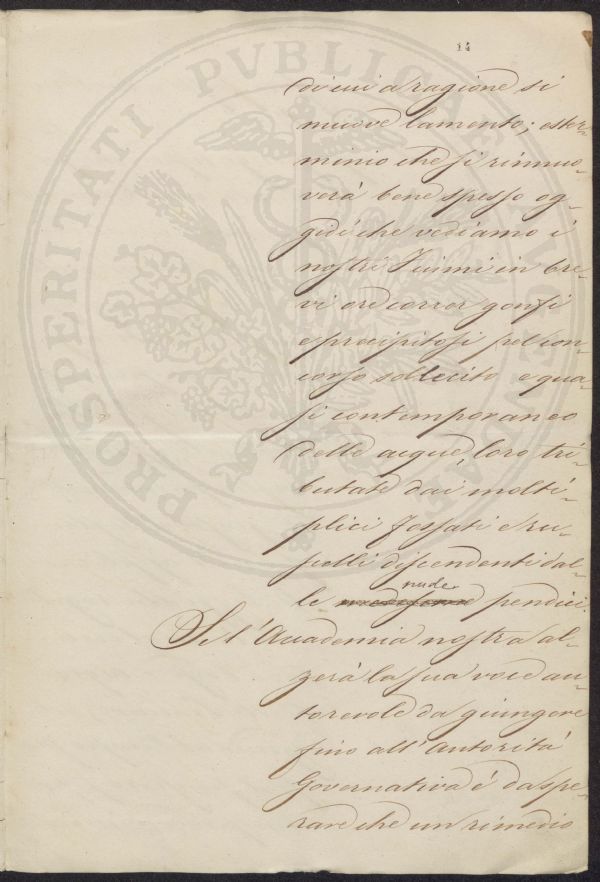 14
di cui a ragione si
muove lamento; ester-
minio che si rinnuo-
verà bene spesso og-
gidì che vediamo i
nostri Fiumi in bre-
vi ore correr gonfi
e precipitosi pel con-
corso sollecito e qua-
si contemporaneo
delle acque, loro tri-
butate dai molti-
plici fossati e ru-
scelli discendenti dal-
le nude pendici.
Se l'Accademia nostra al-
zerà la sua voce au-
torevole da giungere
fino all'Autorità
Governativa è da spe-
rare che un rimedio
PROSPERITATI PVBLICAE AVGENDAE